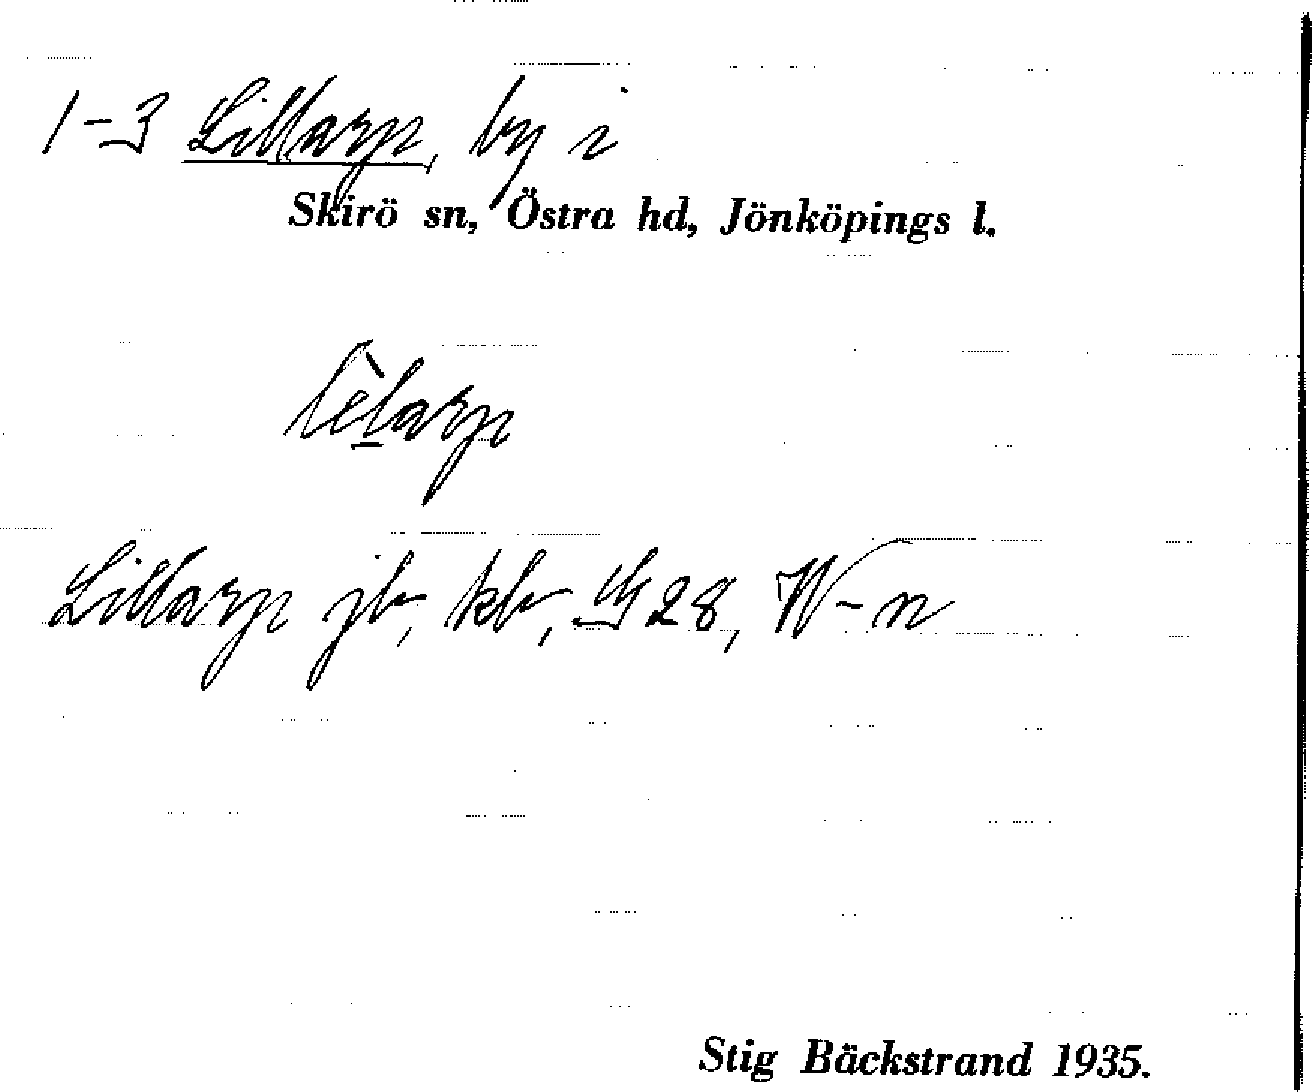 1-3 Lillarp, by i
Skirö sn, Östra hd, Jönköpings l.
lèlarp
Lillarp jb, kb, G 28, W-n
Stig Bäckstrand 1935.